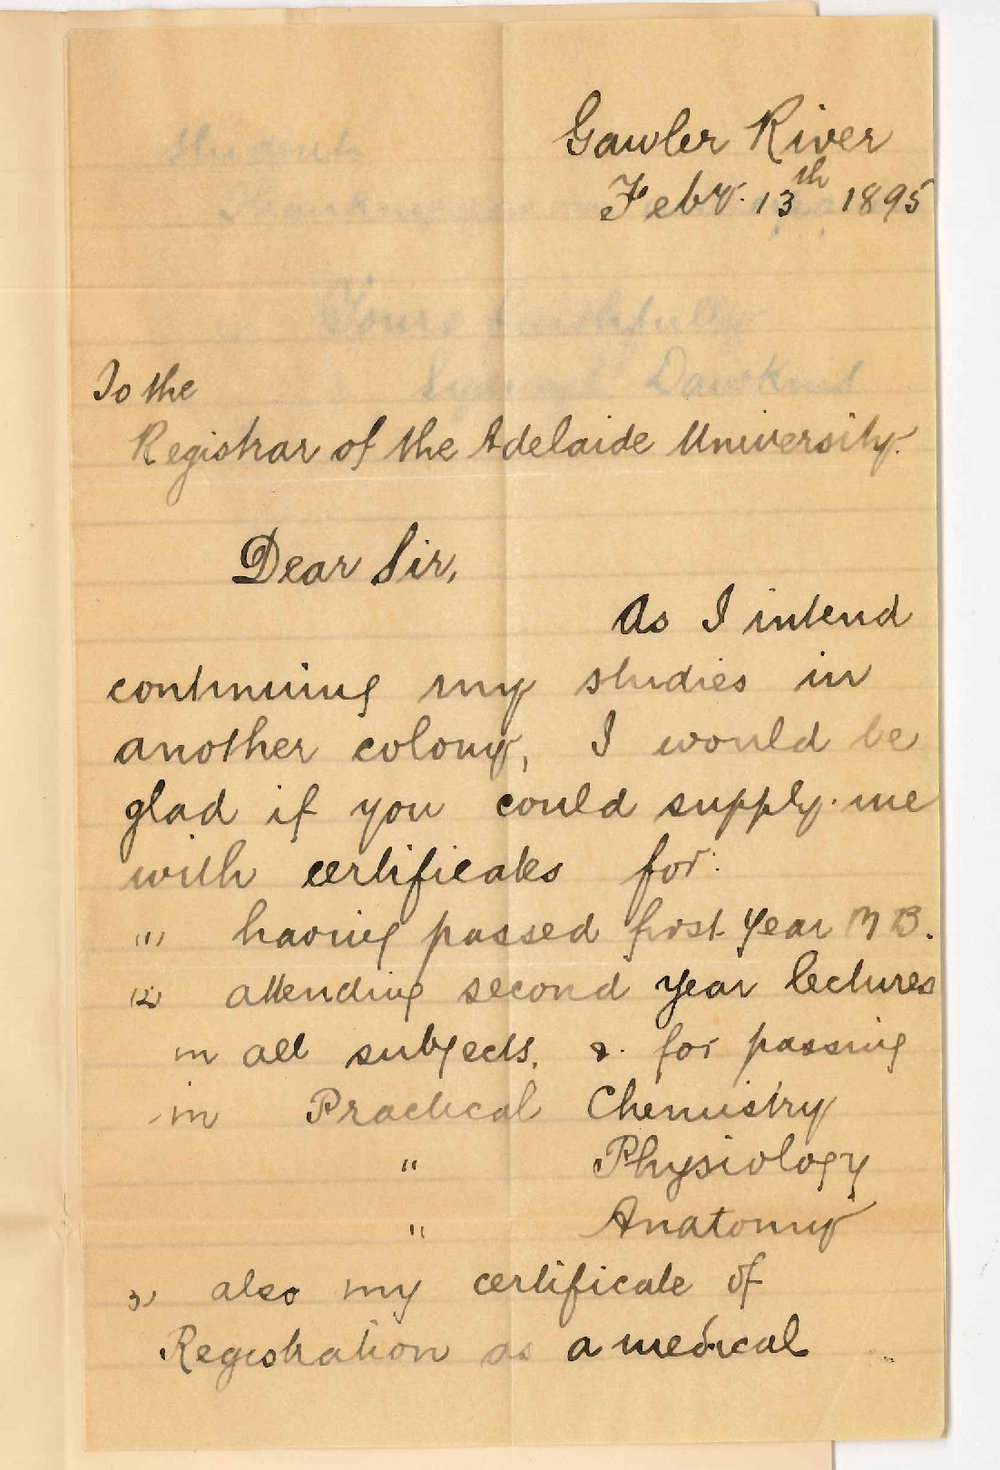 Gawler River
Feby. 13th 1895
To the
Registrar of the Adelaide University.
Dear Sir,
As I intend
continuing my studies in
another colony, I would be
glad if you could supply me
with certificates for:
(1) having passed first Year M B.
(2) attending second year lectures
in all subjects. & for passing
in Practical Chemistry
" Physiology
" Anatomy
3) also my certificate of
Registration as a medical
student
Yours faithfully
Dawkins